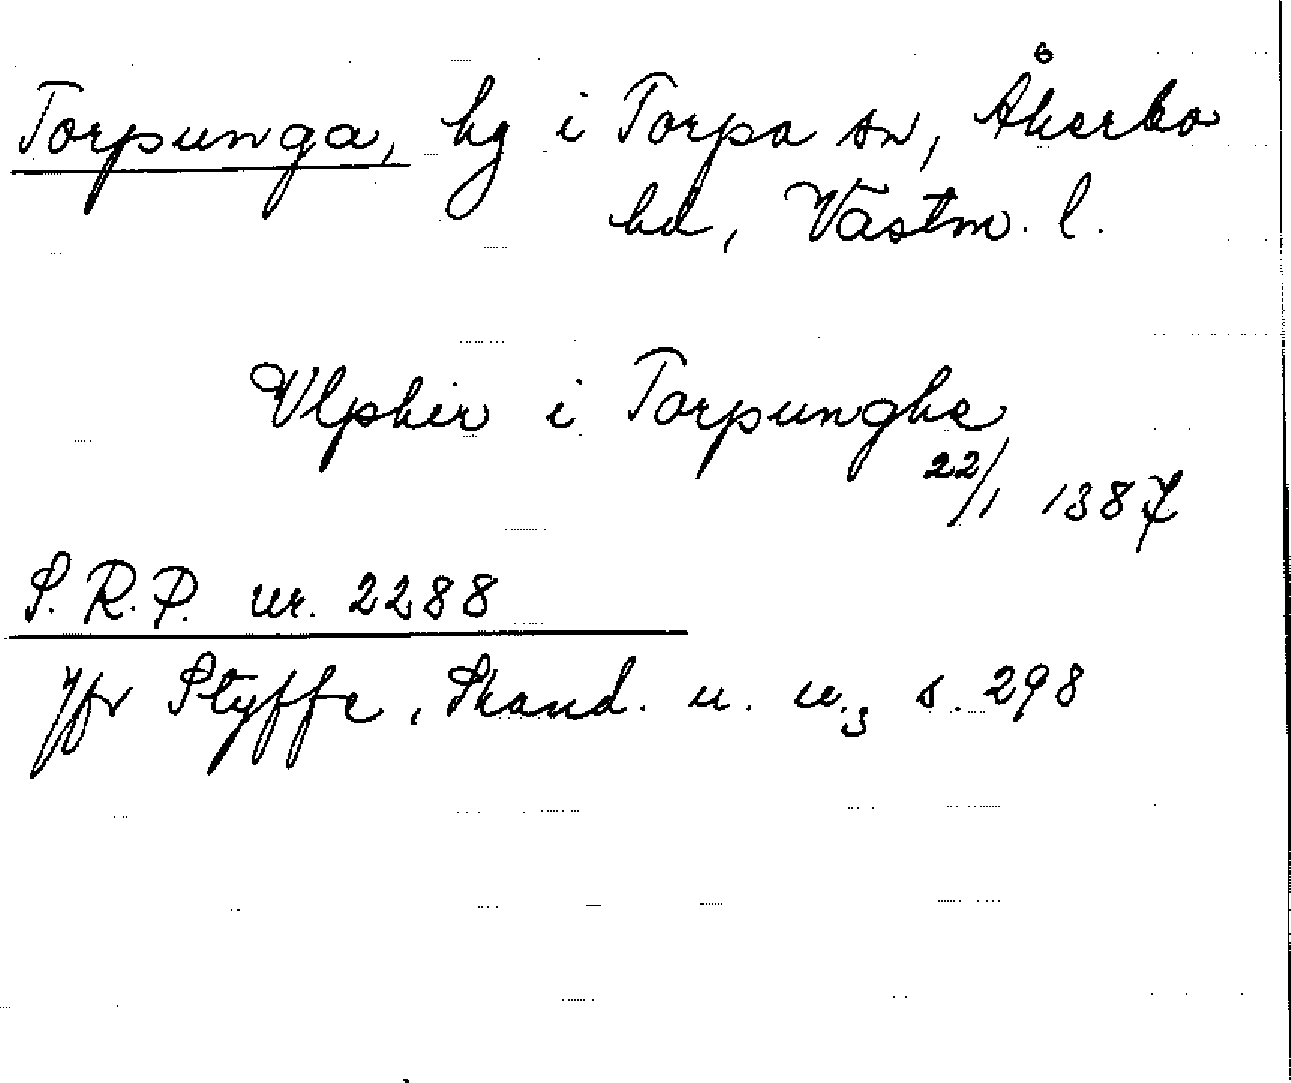 Torpunga, hg i Torpa sn, Åkerbo
hd, Västm. l.
Vlphir i Torpunghe
22/1 1387
S.R.P. nr. 2288
Jfr Styffe, Skand. u. u.3 s. 298